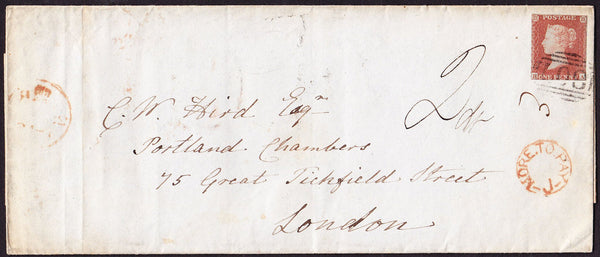 POSTAGE
ONE PENNY
C. W. Hird Esqr
2d
3
Portland Chambers
MORE.TO.PAY
75 Great Tichfield Street
London